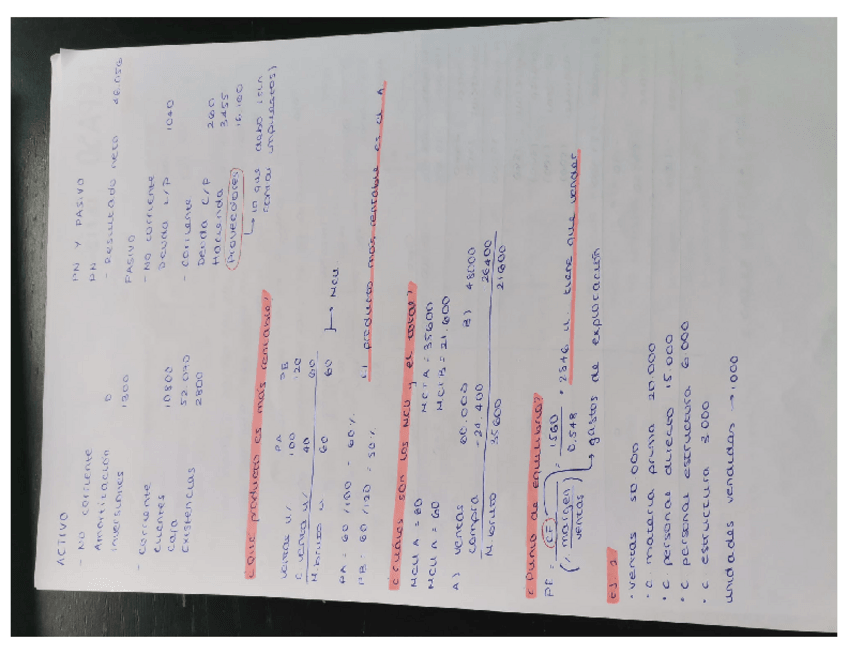 ACTIVO
- NO corriente
Amortización 0
inversiones 1800
- corriente
cuentes 10800
caja 52.090
Existencias 2800
PN Y PASIVO
PN
- Resultado neto
PASIVO
- NO corriente
Deuda L/P 1040
- corriente
Deuda C/P 260
Hacienda 3455
Proveedores 18.100
→ lo que debo (sin contar impuestos)
¿Qué producto es más rentable?
PA PB
ventas u/ 100 120
c venta u/ 40 60
M. bruto u. 60 60 → MCU
PA = 60/100 = 60%
PB = 60/120 = 50%
El producto más rentable es el A
¿Cuáles son los MCU y el total?
MCU A = 60 MCTA = 35600
MCU A = 60 MCTB = 21.600
A) ventas 60.000 B) 48000
compra -24.400 26400
M bruto 35600 21600
¿Punto de equilibrio?
PE = CF / (% margen / ventas) = 1560 / 0.548 = 2846 u. tiene que vender
→ gastos de explotación
ej. 2
• ventas 50 000
• c. materia prima 20.000
• c personal directo 15.000
• c personal estructura 6.000
• c estructura 3.000
unidades vendidas → 1.000